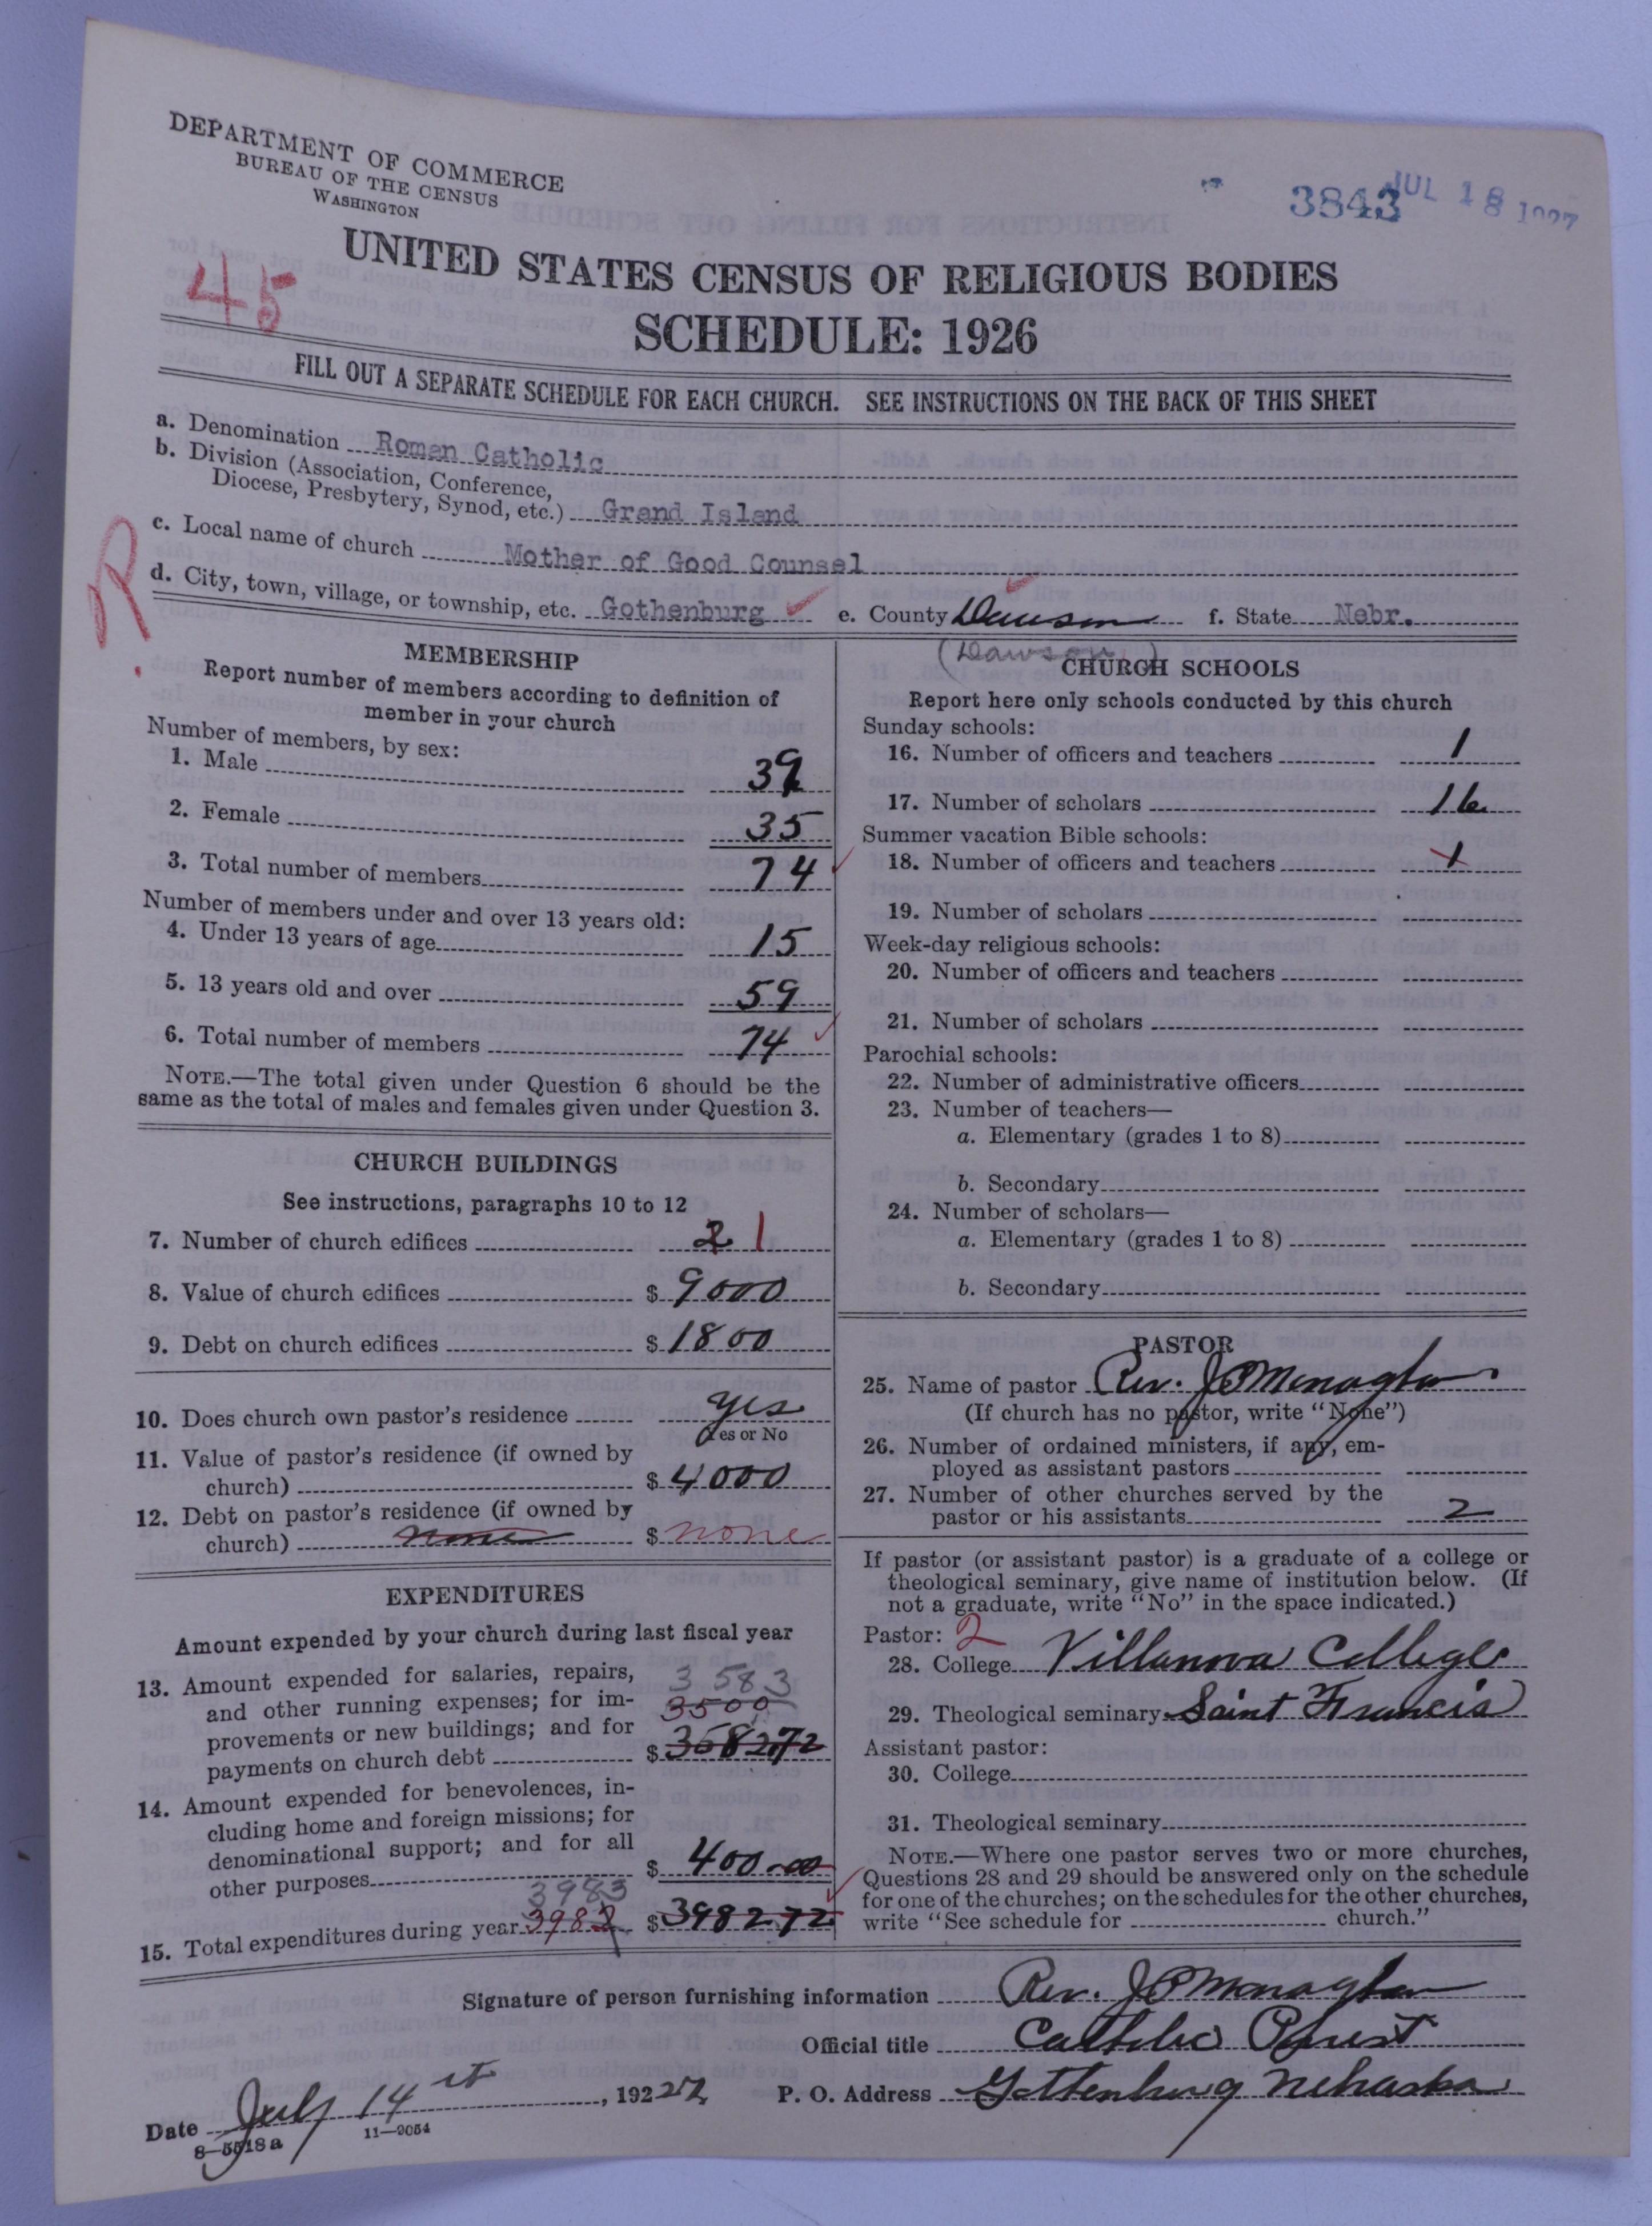 DEPARTMENT OF COMMERCE
BUREAU OF THE CENSUS
WASHINGTON
3843 JUL 18 1927
UNITED STATES CENSUS OF RELIGIOUS BODIES
45
SCHEDULE: 1926
FILL OUT A SEPARATE SCHEDULE FOR EACH CHURCH. SEE INSTRUCTIONS ON THE BACK OF THIS SHEET
a. Denomination Roman Catholic
b. Division (Association, Conference,
Diocese, Presbytery, Synod, etc.) Grand Island
R.
c. Local name of church Mother of Good Counsel
d. City, town, village, or township, etc. Gothenburg e. County Dawson f. State Nebr.
(Dawson)
MEMBERSHIP
Report number of members according to definition of
member in your church
Number of members, by sex:
1. Male 39
2. Female 35
3. Total number of members 74
Number of members under and over 13 years old:
4. Under 13 years of age 15
5. 13 years old and over 59
6. Total number of members 74
NOTE.—The total given under Question 6 should be the
same as the total of males and females given under Question 3.
CHURCH BUILDINGS
See instructions, paragraphs 10 to 12
7. Number of church edifices 2 1
8. Value of church edifices $ 9000
9. Debt on church edifices $ 1800
10. Does church own pastor's residence yes
Yes or No
11. Value of pastor's residence (if owned by
church) $ 4000
12. Debt on pastor's residence (if owned by
church) none $ none
EXPENDITURES
Amount expended by your church during last fiscal year
13. Amount expended for salaries, repairs, 3583
and other running expenses; for im- 3500
provements or new buildings; and for
payments on church debt $ 358272
14. Amount expended for benevolences, in-
cluding home and foreign missions; for
denominational support; and for all
other purposes $ 400.00
3983
15. Total expenditures during year 3982 $ 398272
CHURCH SCHOOLS
Report here only schools conducted by this church
Sunday schools:
16. Number of officers and teachers 1
17. Number of scholars 16
Summer vacation Bible schools:
18. Number of officers and teachers 1
19. Number of scholars
Week-day religious schools:
20. Number of officers and teachers
21. Number of scholars
Parochial schools:
22. Number of administrative officers
23. Number of teachers—
a. Elementary (grades 1 to 8)
b. Secondary
24. Number of scholars—
a. Elementary (grades 1 to 8)
b. Secondary
PASTOR
25. Name of pastor Rev. J P Monaghan
(If church has no pastor, write "None")
26. Number of ordained ministers, if any, em-
ployed as assistant pastors
27. Number of other churches served by the
pastor or his assistants 2
If pastor (or assistant pastor) is a graduate of a college or
theological seminary, give name of institution below. (If
not a graduate, write "No" in the space indicated.)
Pastor: 2
28. College Villanova College
29. Theological seminary Saint Francis
Assistant pastor:
30. College
31. Theological seminary
NOTE.—Where one pastor serves two or more churches,
Questions 28 and 29 should be answered only on the schedule
for one of the churches; on the schedules for the other churches,
write "See schedule for church."
Signature of person furnishing information Rev. J P Monaghan
Official title Catholic Priest
Date July 14 st, 192 27 P. O. Address Gothenburg Nebraska
8—5518a 11—9054